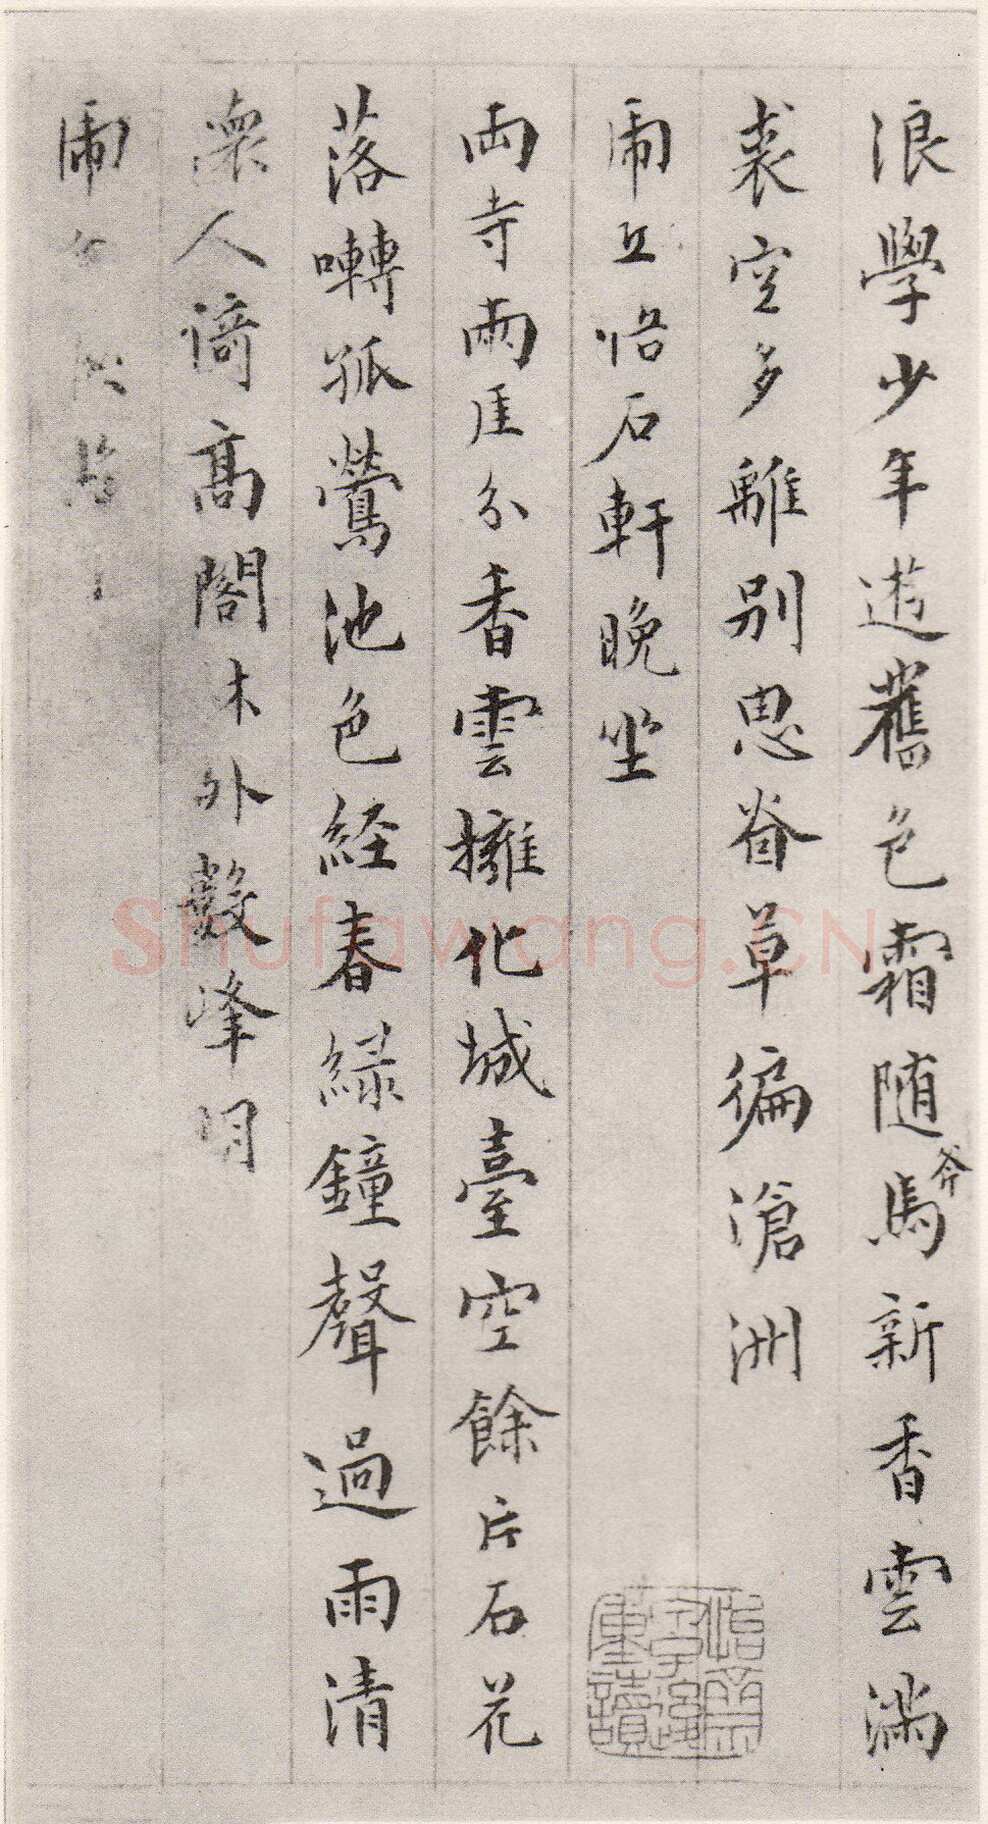 浪學少年遊舊色霜随馬新香雲滿
裘空多離別思旾草徧滄洲
虎丘悟石軒晚坐
両寺兩厓分香雲擁化城臺空餘片石花
落囀孤鶯池色経春緑鐘聲過雨清
懷人倚高閣木外數峰明
虎
Shufawang.CN